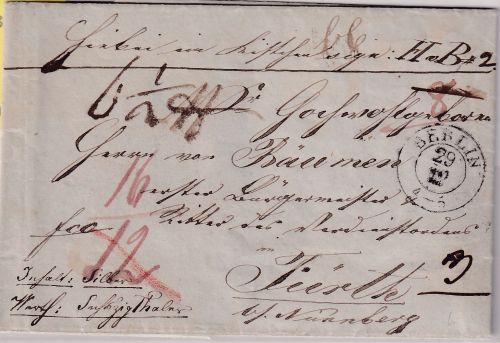 Hierbei ein Kistchen sign. H v B # 2.
6 1/2
8
Sr Hochwohlgeboren
BERLIN
29
4-5
Herrn von Bäumen
16
erster Bürgermeister &
fco
Ritter des Verdienstordens
12
in
3
Inhalt: Silber
Fürth
Werth: Sechszig Thaler
b/. Nürnberg